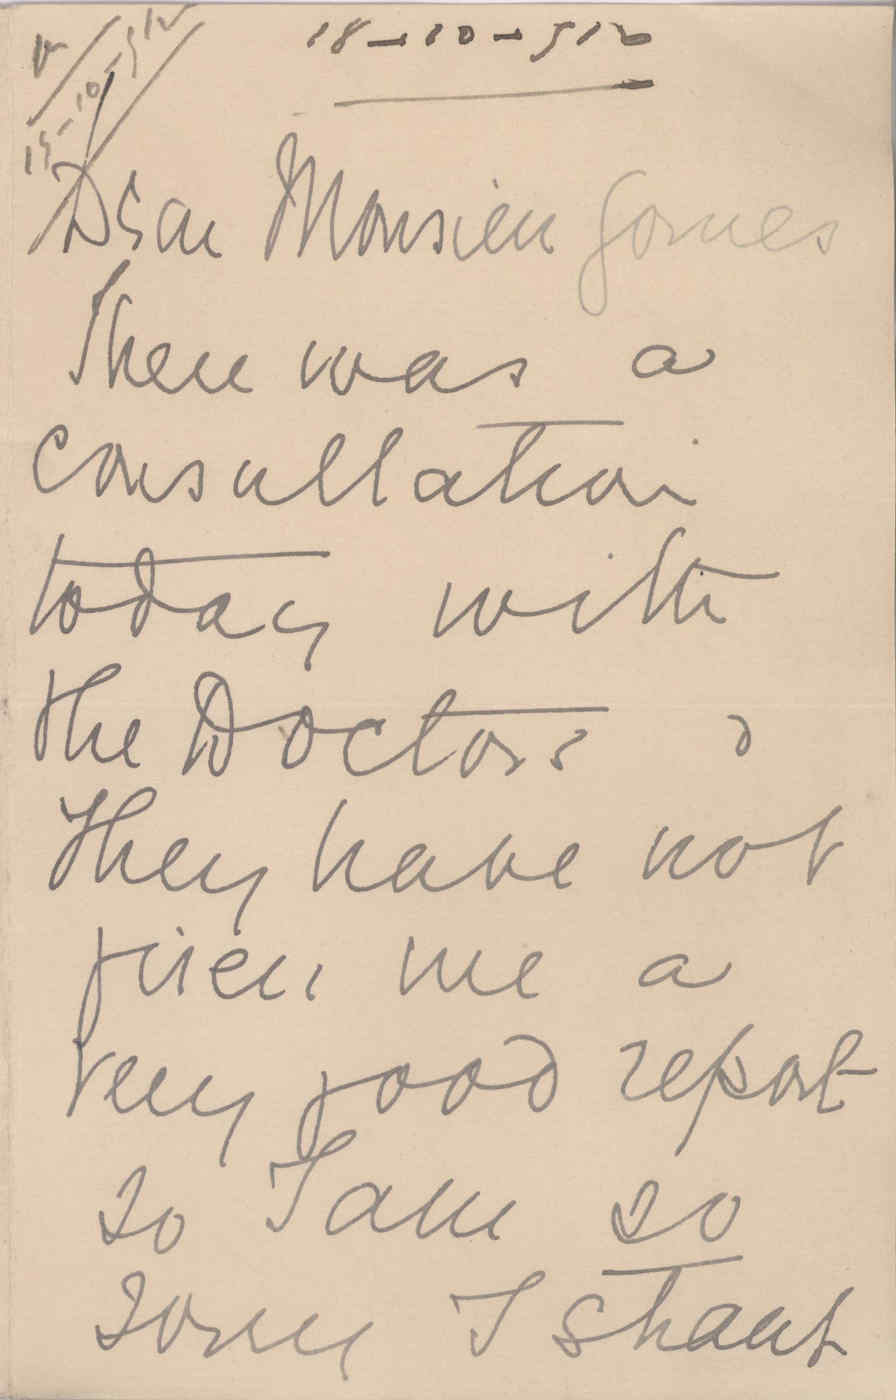 18-10-912
Dear Monsieur Gomes
There was a
consultation
today with
the Doctors &
they have not
given me a
very good report
so I am so
sorry I shant